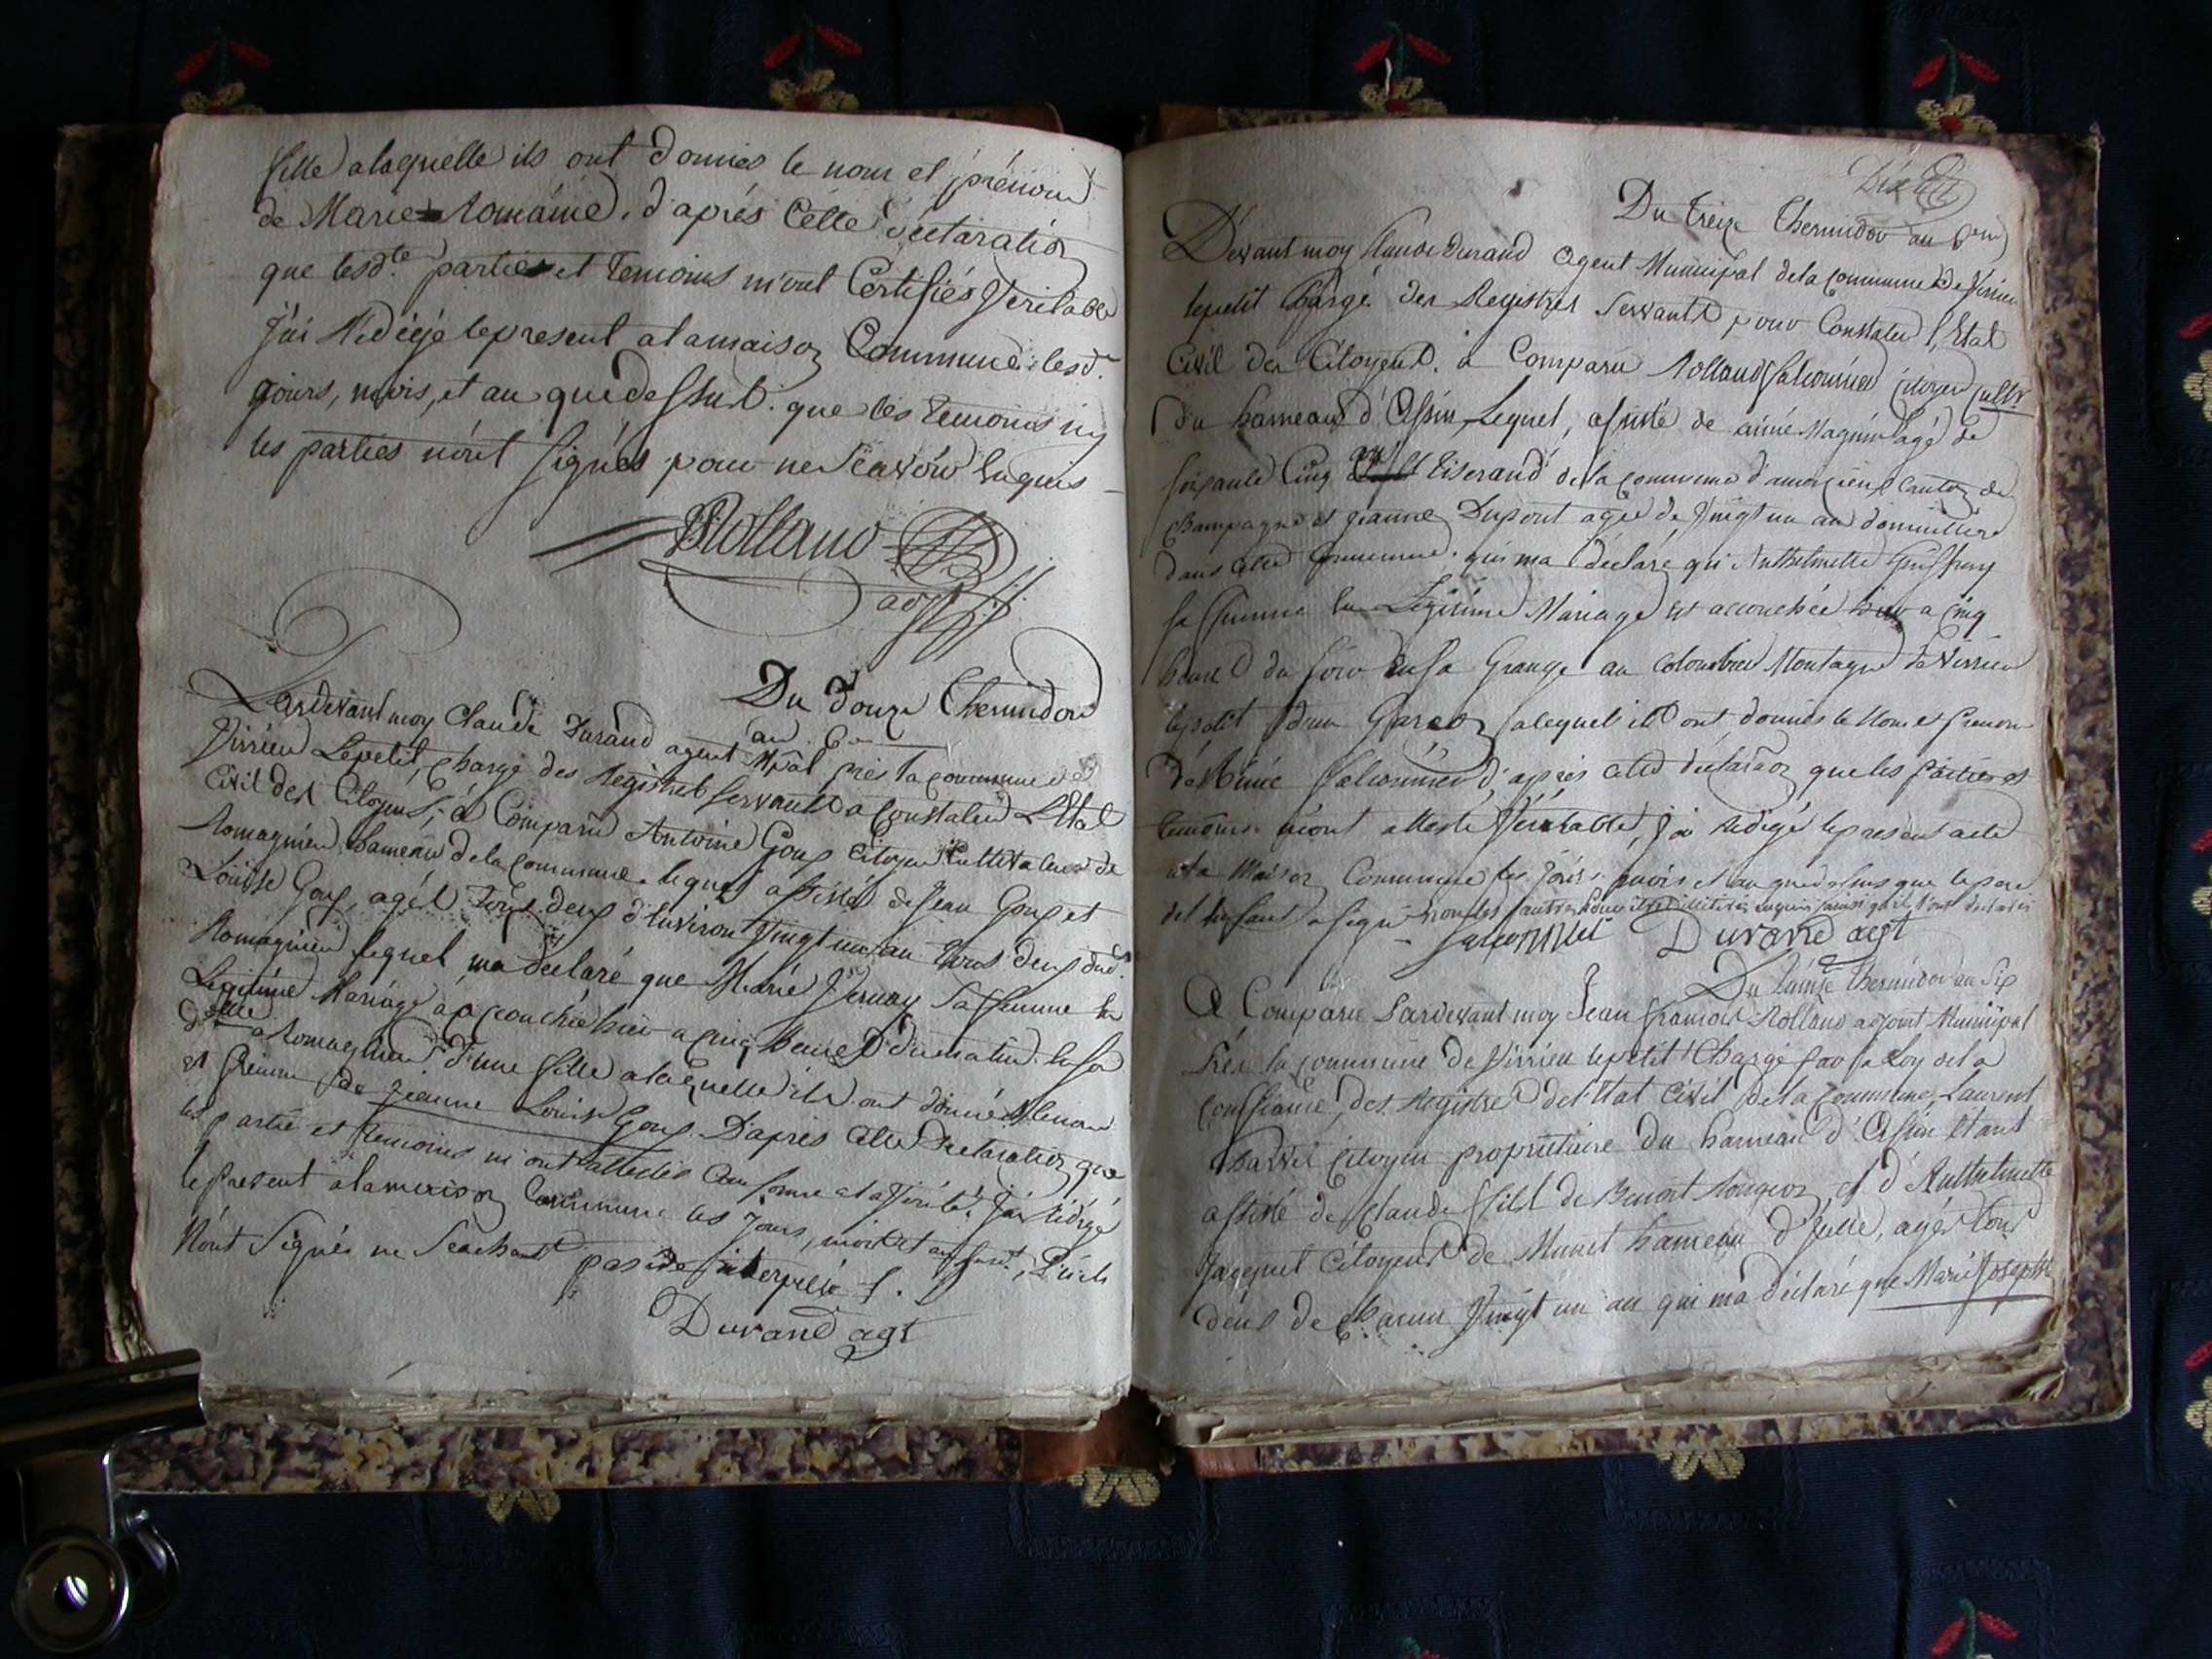 fille a laquelle ils ont donnés le nom et prénom
de Marie Romaine. d'aprés Cette déclaration
que lesd.te parties et temoins m'ont Certifiés Veritable
J'ai Redigé le present a la maison Commune lesd.
jours, mois, et an que dessus. que les temoins ny
les parties n'ont Signés pour ne Scavoir
JRolland
adjt
Du Douze Thermidor
an 6.e
Pardevant moy Claude Durand agent Mpal prés la commune de
Virrieu Lepetit, chargé des Registres servants a Constater L'Etat
Civil des Citoyens, à Comparu Antoine Goux Citoyen Cultivateur de
Romagnieu hameau de la commune. lequel assisté de Jean Goux et
Louise Goux, agés tous deux d'Environ Vingt un an tous deux dud.
Romagnieu lequel m'a declaré que Marie sa ffemme En
Legitime Mariage a accouchée hier a cinq heures du matin.
a Romagnieu d'une fille a laquelle ils ont donnés le nom
et prenom de Jeanne Louise Goux D'aprés Cette Declaration que
les partie et temoins m'ont attestés Conforme a la Verité. J'ai redigé
le present a la maison Commune les jours, mois et an
N'ont Signés ne Seachant pas de interpelé S.
Durand agt
Du treize Thermidor an 6.em
Devant moy Claude Durand agent Municipal de la commune de Virrieu
lepetit Chargé des Registres Servants pour Constater l'Etat
Civil des Citoyens. a Comparu Rolland falconnier Citoyen Cultr
du hameau d'Assin Lequel, assisté de aimé Magnin agé de
soixante Cinq ans tiserand de la commune d'ameyzieu Canton de
Champagne et jeanne Dupont agée de Vingt un an domiciliée
dans cette Commune. qui m'a déclaré qui Anthelmette
sa ffemme En Legitime Mariage est accouchée hier a Cinq
heures du soir En sa Grange au Colombier Montagne de Virrieu
lepetit d'un Garcon a lequel ils ont donnés le Nom et Prenom
d'Aimé falconnier d'aprés cette déclaraon que les parties et
temoins m'ont attesté Véritable, J'ai redigé le present acte
a la Maison Commune les Jours mois et an que dessus que le pere
de l'enfant a signé non les autres pour ainsi qu'ils l'ont declarés
falconnier Durand agt
Du Thermidor an Six
A Comparu Pardevant moy Jean francois Rolland adjoint Municipal
Prés la commune de Virrieu lepetit Chargé par la Loy de la
des Registre de l'Etat Civil de la commune, Laurent
Citoyen propriétaire du hameau d'Assin Etant
assisté de Claude ffils de Benoit et d'Anthelmette
Citoyens de Munet hameau d', agés tous
deux de chacun Vingt un an qui m'a déclaré que Marie Josephte